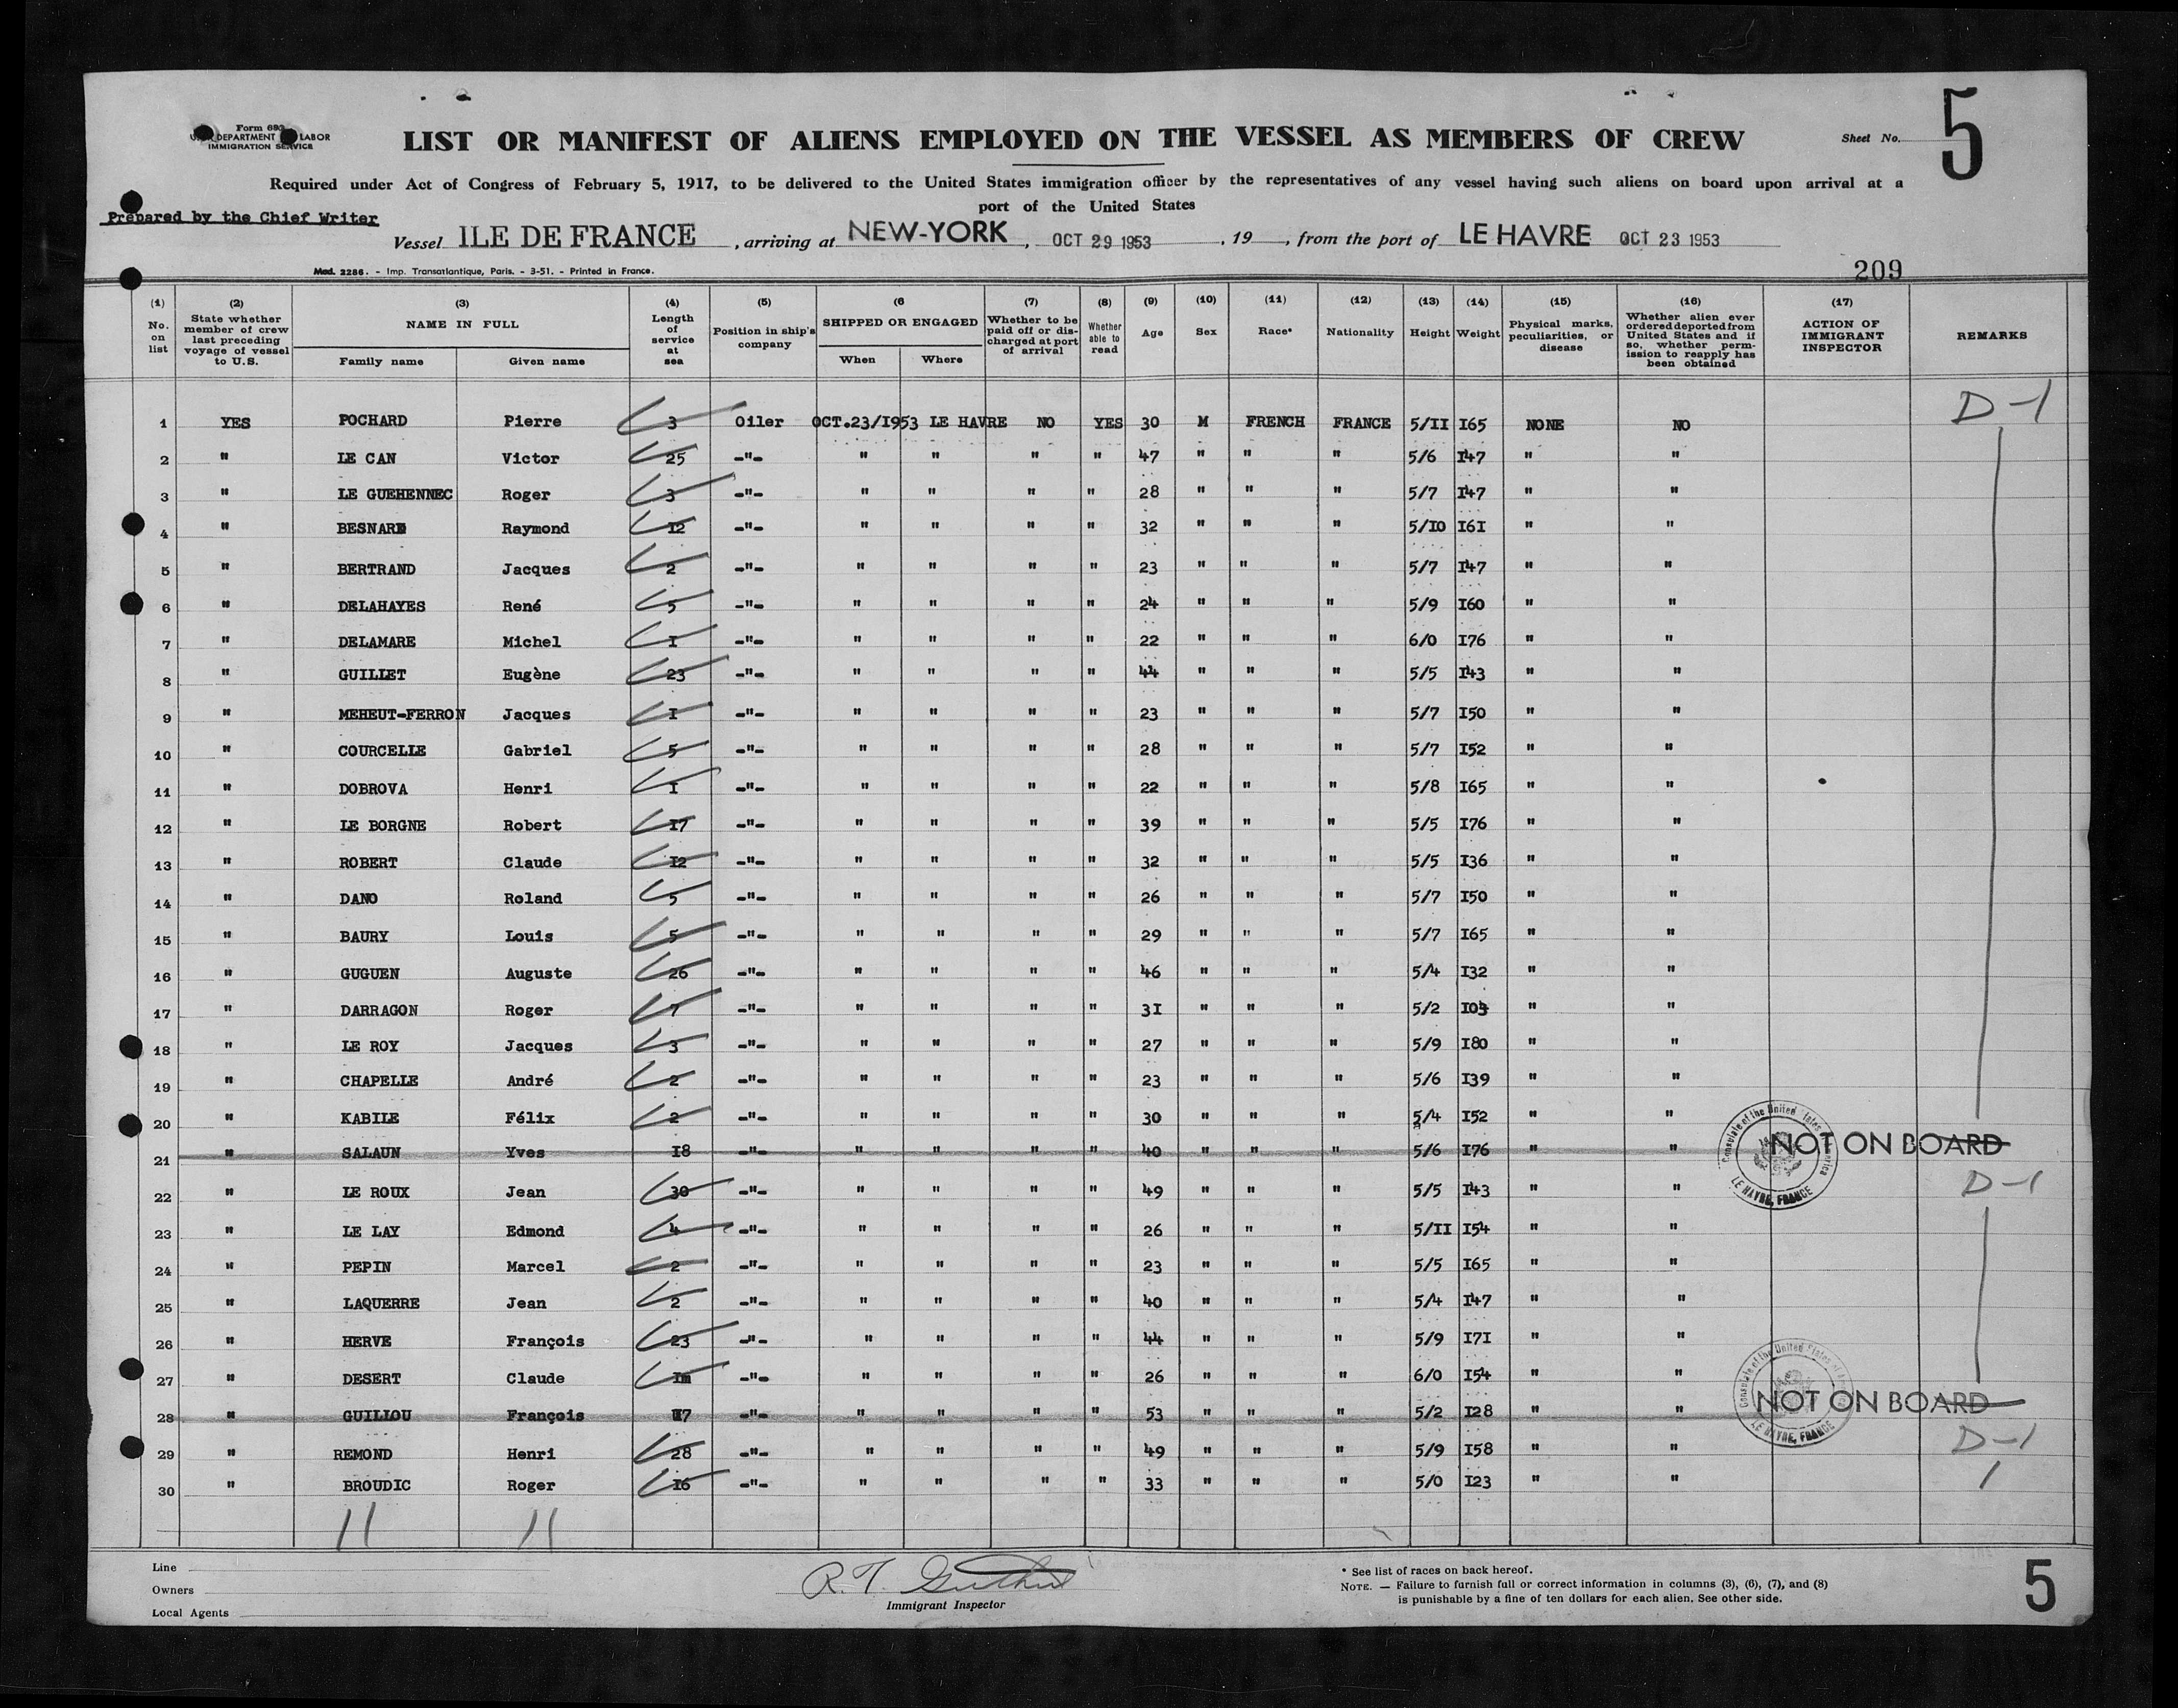 Form 689
U. S. DEPARTMENT LABOR
IMMIGRATION SERVICE
LIST OR MANIFEST OF ALIENS EMPLOYED ON THE VESSEL AS MEMBERS OF CREW
Sheet No. 5
Required under Act of Congress of February 5, 1917, to be delivered to the United States immigration officer by the representatives of any vessel having such aliens on board upon arrival at a
port of the United States
Prepared by the Chief Writer
Vessel ILE DE FRANCE, arriving at NEW-YORK, OCT 29 1953, 19 , from the port of LE HAVRE OCT 23 1953
Mod. 2286. - Imp. Transatlantique, Paris. - 3-51. - Printed in France.
209
(1) No. on list
(2) State whether member of crew last preceding voyage of vessel to U.S.
(3) NAME IN FULL Family name Given name
(4) Length of service at sea
(5) Position in ship's company
(6 SHIPPED OR ENGAGED When Where
(7) Whether to be paid off or discharged at port of arrival
(8) Whether able to read
(9) Age
(10) Sex
(11) Race*
(12) Nationality
(13) Height
(14) Weight
(15) Physical marks, peculiarities, or disease
(16) Whether alien ever ordered deported from United States and if so, whether permission to reapply has been obtained
(17) ACTION OF IMMIGRANT INSPECTOR
REMARKS
D-1
1 YES POCHARD Pierre 3 Oiler OCT.23/I953 LE HAVRE NO YES 30 M FRENCH FRANCE 5/II I65 NONE NO
2 " LE CAN Victor 25 -"- " " " " 47 " " " 5/6 I47 " "
3 " LE GUEHENNEC Roger 3 -"- " " " " 28 " " " 5/7 I47 " "
4 " BESNARD Raymond I2 -"- " " " " 32 " " " 5/I0 I6I " "
5 " BERTRAND Jacques 2 -"- " " " " 23 " " " 5/7 I47 " "
6 " DELAHAYES René 5 -"- " " " " 24 " " " 5/9 I60 " "
7 " DELAMARE Michel I -"- " " " " 22 " " " 6/0 I76 " "
8 " GUILLET Eugène 23 -"- " " " " 44 " " " 5/5 I43 " "
9 " MEHEUT-FERRON Jacques I -"- " " " " 23 " " " 5/7 I50 " "
10 " COURCELLE Gabriel 5 -"- " " " " 28 " " " 5/7 I52 " "
11 " DOBROVA Henri I -"- " " " " 22 " " " 5/8 I65 " "
12 " LE BORGNE Robert I7 -"- " " " " 39 " " " 5/5 I76 " "
13 " ROBERT Claude I2 -"- " " " " 32 " " " 5/5 I36 " "
14 " DANO Roland 5 -"- " " " " 26 " " " 5/7 I50 " "
15 " BAURY Louis 5 -"- " " " " 29 " " " 5/7 I65 " "
16 " GUGUEN Auguste 26 -"- " " " " 46 " " " 5/4 I32 " "
17 " DARRAGON Roger 7 -"- " " " " 3I " " " 5/2 " "
18 " LE ROY Jacques 3 -"- " " " " 27 " " " 5/9 I80 " "
19 " CHAPELLE André 2 -"- " " " " 23 " " " 5/6 I39 " "
20 " KABILE Félix 2 -"- " " " " 30 " " " 5/4 I52 " "
21 " SALAUN Yves I8 -"- " " " " 40 " " " 5/6 I76 " " NOT ON BOARD
Consulate of the United States of America
LE HAVRE, FRANCE
22 " LE ROUX Jean 30 -"- " " " " 49 " " " 5/5 I43 " " D-1
23 " LE LAY Edmond 4 -"- " " " " 26 " " " 5/II I54 " "
24 " PEPIN Marcel 2 -"- " " " " 23 " " " 5/5 I65 " "
25 " LAQUERRE Jean 2 -"- " " " " 40 " " " 5/4 I47 " "
26 " HERVE François 23 -"- " " " " 44 " " " 5/9 I7I " "
27 " DESERT Claude Im -"- " " " " 26 " " " 6/0 I54 " "
28 " GUILLOU François 17 -"- " " " " 53 " " " 5/2 I28 " " NOT ON BOARD
Consulate of the United States of America
LE HAVRE, FRANCE
29 " REMOND Henri 28 -"- " " " " 49 " " " 5/9 I58 " " D-1
30 " BROUDIC Roger I6 -"- " " " " 33 " " " 5/0 I23 " "
11 11
Line
Owners
Local Agents
R. T.
Immigrant Inspector
* See list of races on back hereof.
NOTE. — Failure to furnish full or correct information in columns (3), (6), (7), and (8)
is punishable by a fine of ten dollars for each alien. See other side.
5